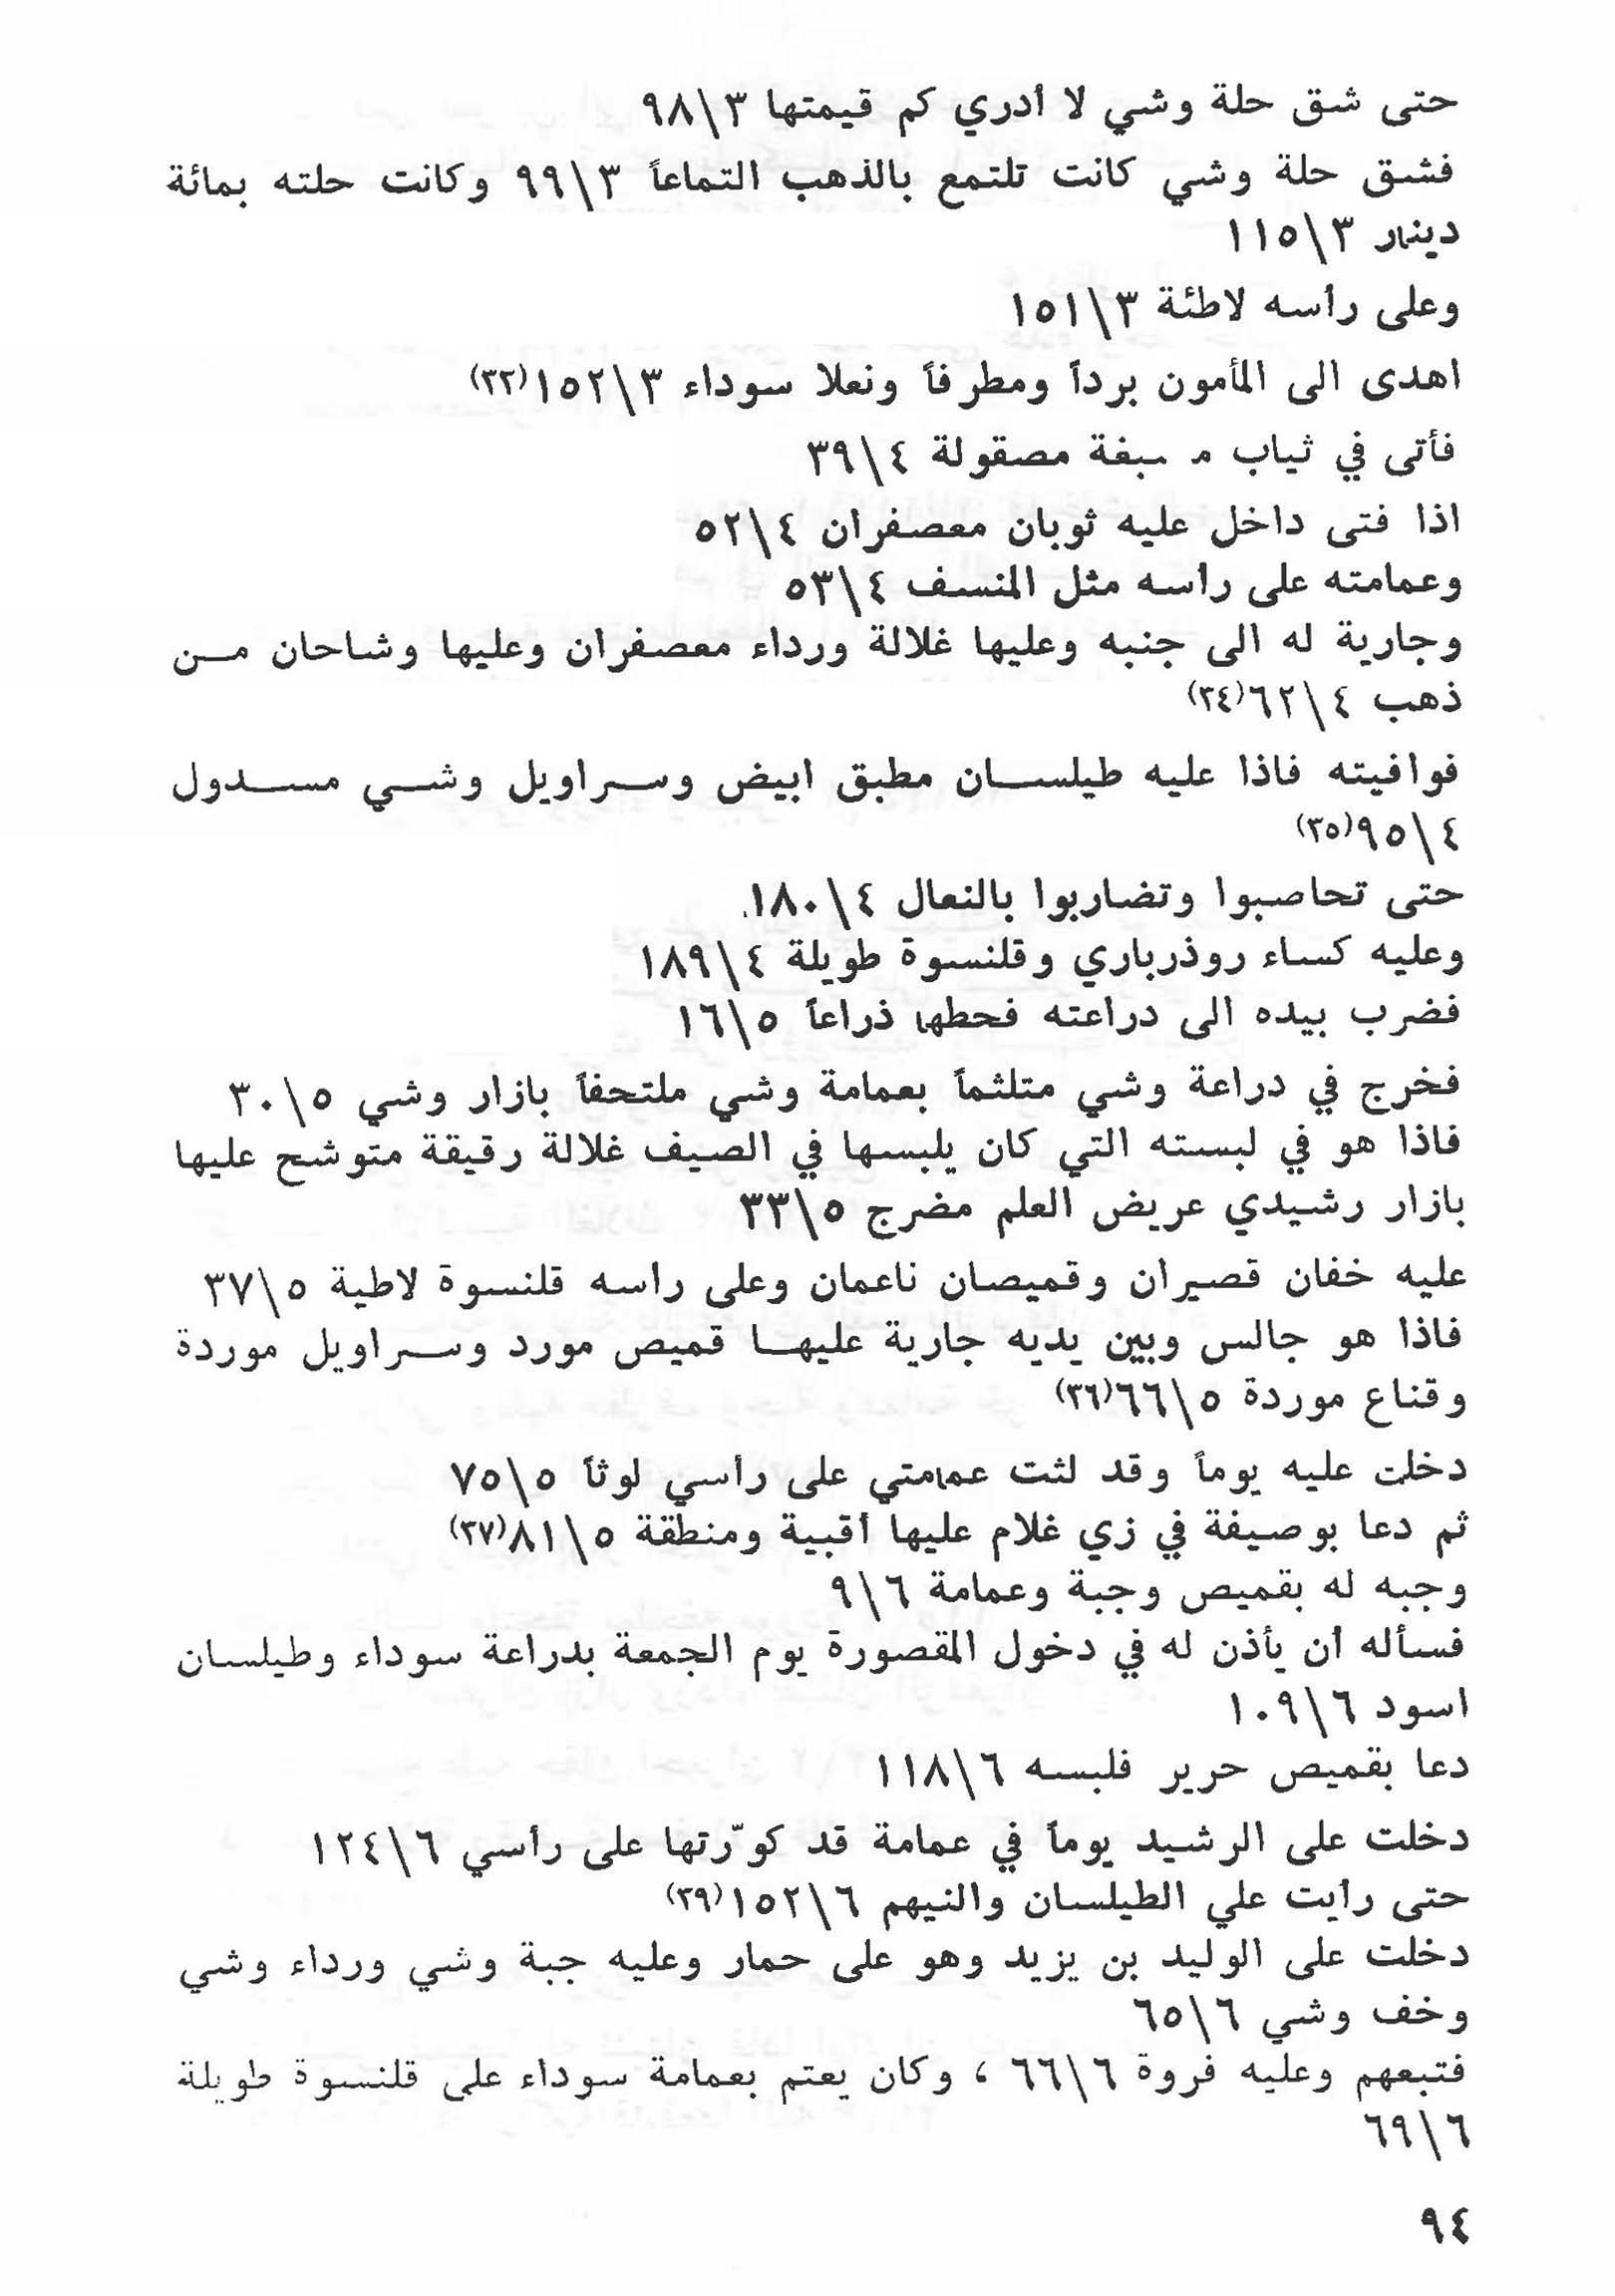 حتى شق حلة وشي لا أدري كم قيمتها ٣\٩٨
فشق حلة وشي كانت تلتمع بالذهب التماعاً ٣\٩٩ وكانت حلته بمائة
دينار ٣\١١٥
وعلى رأسه لاطئة ٣\١٥١
اهدى الى المأمون برداً ومطرفاً ونعلا سوداء ٣\١٥٢(٣٣)
فأتى في ثياب مصقولة ٤\٣٩
اذا فتى داخل عليه ثوبان معصفران ٤\٥٢
وعمامته على رأسه مثل المنسف ٤\٥٣
وجارية له الى جنبه وعليها غلالة ورداء معصفران وعليها وشاحان من
ذهب ٤\٦٢(٣٤)
فوافيته فاذا عليه طيلسان مطبق ابيض وسراويل وشي مسدول
٤\٩٥(٣٥)
حتى تحاصبوا وتضاربوا بالنعال ٤\١٨٠
وعليه كساء روذرباري وقلنسوة طويلة ٤\١٨٩
فضرب بيده الى دراعته فحطها ذراعاً ٥\١٦
فخرج في دراعة وشي متلثماً بعمامة وشي ملتحفاً بازار وشي ٥\٣٠
فاذا هو في لبسته التي كان يلبسها في الصيف غلالة رقيقة متوشح عليها
بازار رشيدي عريض العلم مضرج ٥\٣٣
عليه خفان قصيران وقميصان ناعمان وعلى راسه قلنسوة لاطية ٥\٣٧
فاذا هو جالس وبين يديه جارية عليها قميص مورد وسراويل موردة
وقناع موردة ٥\٦٦(٣٦)
دخلت عليه يوماً وقد لثت عمامتي على رأسي لوثاً ٥\٧٥
ثم دعا بوصيفة في زي غلام عليها أقبية ومنطقة ٥\٨١(٣٧)
وجبه له بقميص وجبة وعمامة ٦\٩
فسأله أن يأذن له في دخول المقصورة يوم الجمعة بدراعة سوداء وطيلسان
اسود ٦\١٠٩
دعا بقميص حرير فلبسه ٦\١١٨
دخلت على الرشيد يوماً في عمامة قد كوّرتها على رأسي ٦\١٢٤
حتى رأيت علي الطيلسان والنيهم ٦\١٥٢(٣٩)
دخلت على الوليد بن يزيد وهو على حمار وعليه جبة وشي ورداء وشي
وخف وشي ٦\٦٥
فتبعهم وعليه فروة ٦\٦٦ ، وكان يعتم بعمامة سوداء على قلنسوة طويلة
٦\٦٩
٩٤